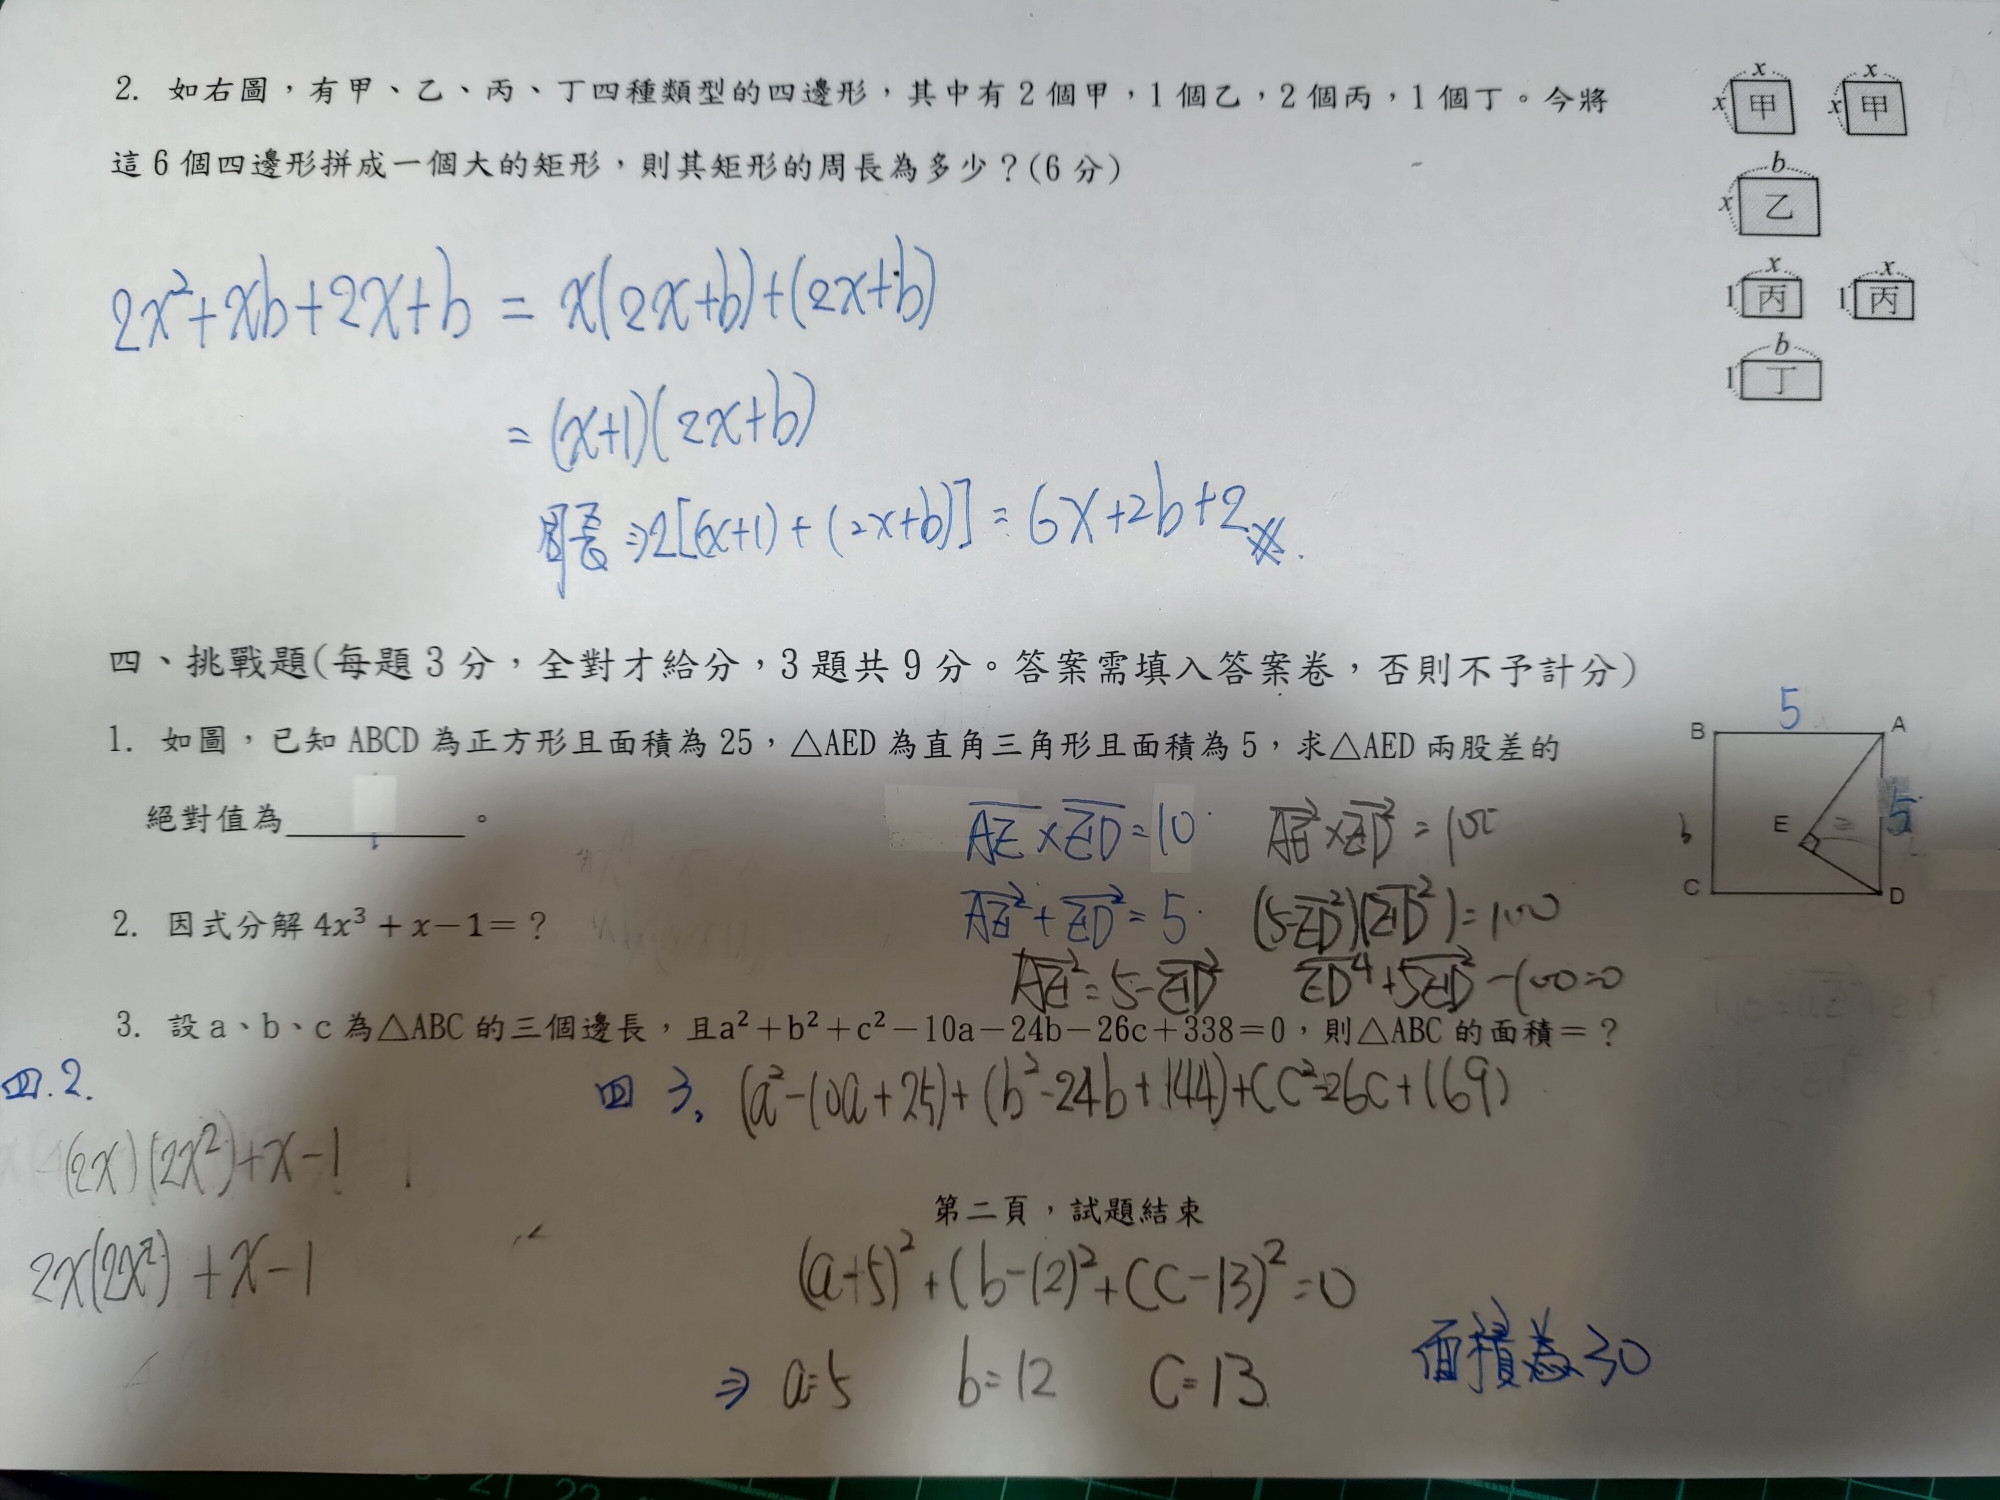 2. 如右圖，有甲、乙、丙、丁四種類型的四邊形，其中有2個甲，1個乙，2個丙，1個丁。今將
這6個四邊形拼成一個大的矩形，則其矩形的周長為多少？(6分)
x x
x 甲 x 甲
b
x 乙
x x
1 丙 1 丙
b
1 丁
2x²+xb+2x+b = x(2x+b)+(2x+b)
= (x+1)(2x+b)
周長⇒2[(x+1)+(2x+b)] = 6x+2b+2
四、挑戰題(每題3分，全對才給分，3題共9分。答案需填入答案卷，否則不予計分)
1. 如圖，已知ABCD為正方形且面積為25，△AED為直角三角形且面積為5，求△AED兩股差的
絕對值為________。
5
B A
E 5
C D
AE×ED=10 AE²×ED²=100
AE²+ED²=5 (5-ED²)(ED²)=100
AE²=5-ED² ED⁴+5ED²-100=0
2. 因式分解4x³+x−1=？
3. 設a、b、c為△ABC的三個邊長，且a²+b²+c²−10a−24b−26c+338=0，則△ABC的面積=？
四.2.
(2x)(2x²)+x-1
2x(2x²)+x-1
四 3. (a²-10a+25)+(b²-24b+144)+(c²-26c+169)
第二頁，試題結束
(a+5)²+(b-12)²+(c-13)²=0
⇒ a=5 b=12 c=13
面積為30
21 22